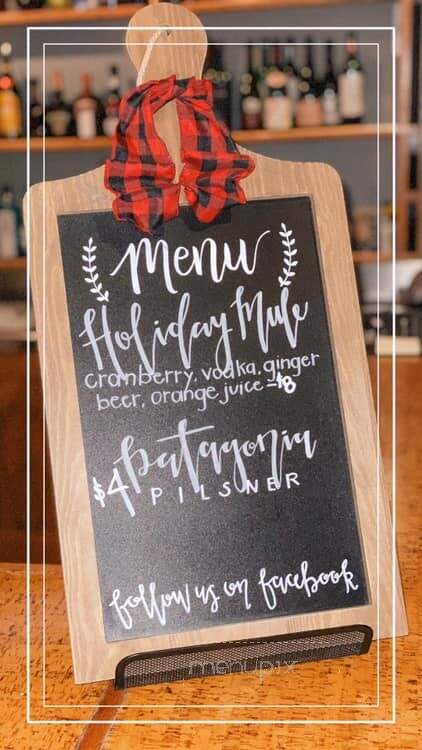 menu
Holiday Mule
cranberry, vodka, ginger
beer, orange juice - $8
Patagonia
$4 PILSNER
follow us on facebook
menupix